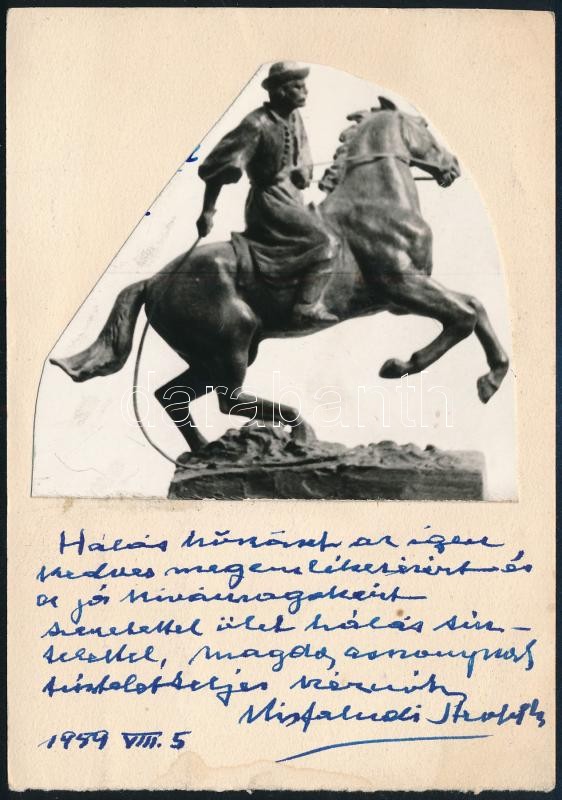 darabanth
Hálás köszönet az igen
kedves megemlékezésért és
a jó kívánságokért
szeretettel ölel hálás tisz-
telettel, Magda asszonynak
tiszteletteljes
Kisfaludi Strobl Zs
1959 VIII. 5